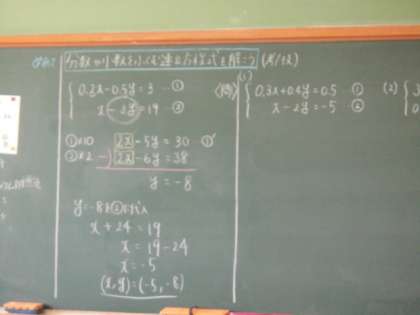 分数や小数をふくむ連立方程式を解こう
0.2x-0.5y=3 …①
x-3y=19 …②
①×10 2x-5y=30 …①'
②×2 -) 2x-6y=38
y=-8
y=-8を②に代入
x+24=19
x=19-24
x=-5
(x,y)=(-5,-8)
(1)
0.3x+0.4y=0.5 …①
x-2y=-5 …②
(2)